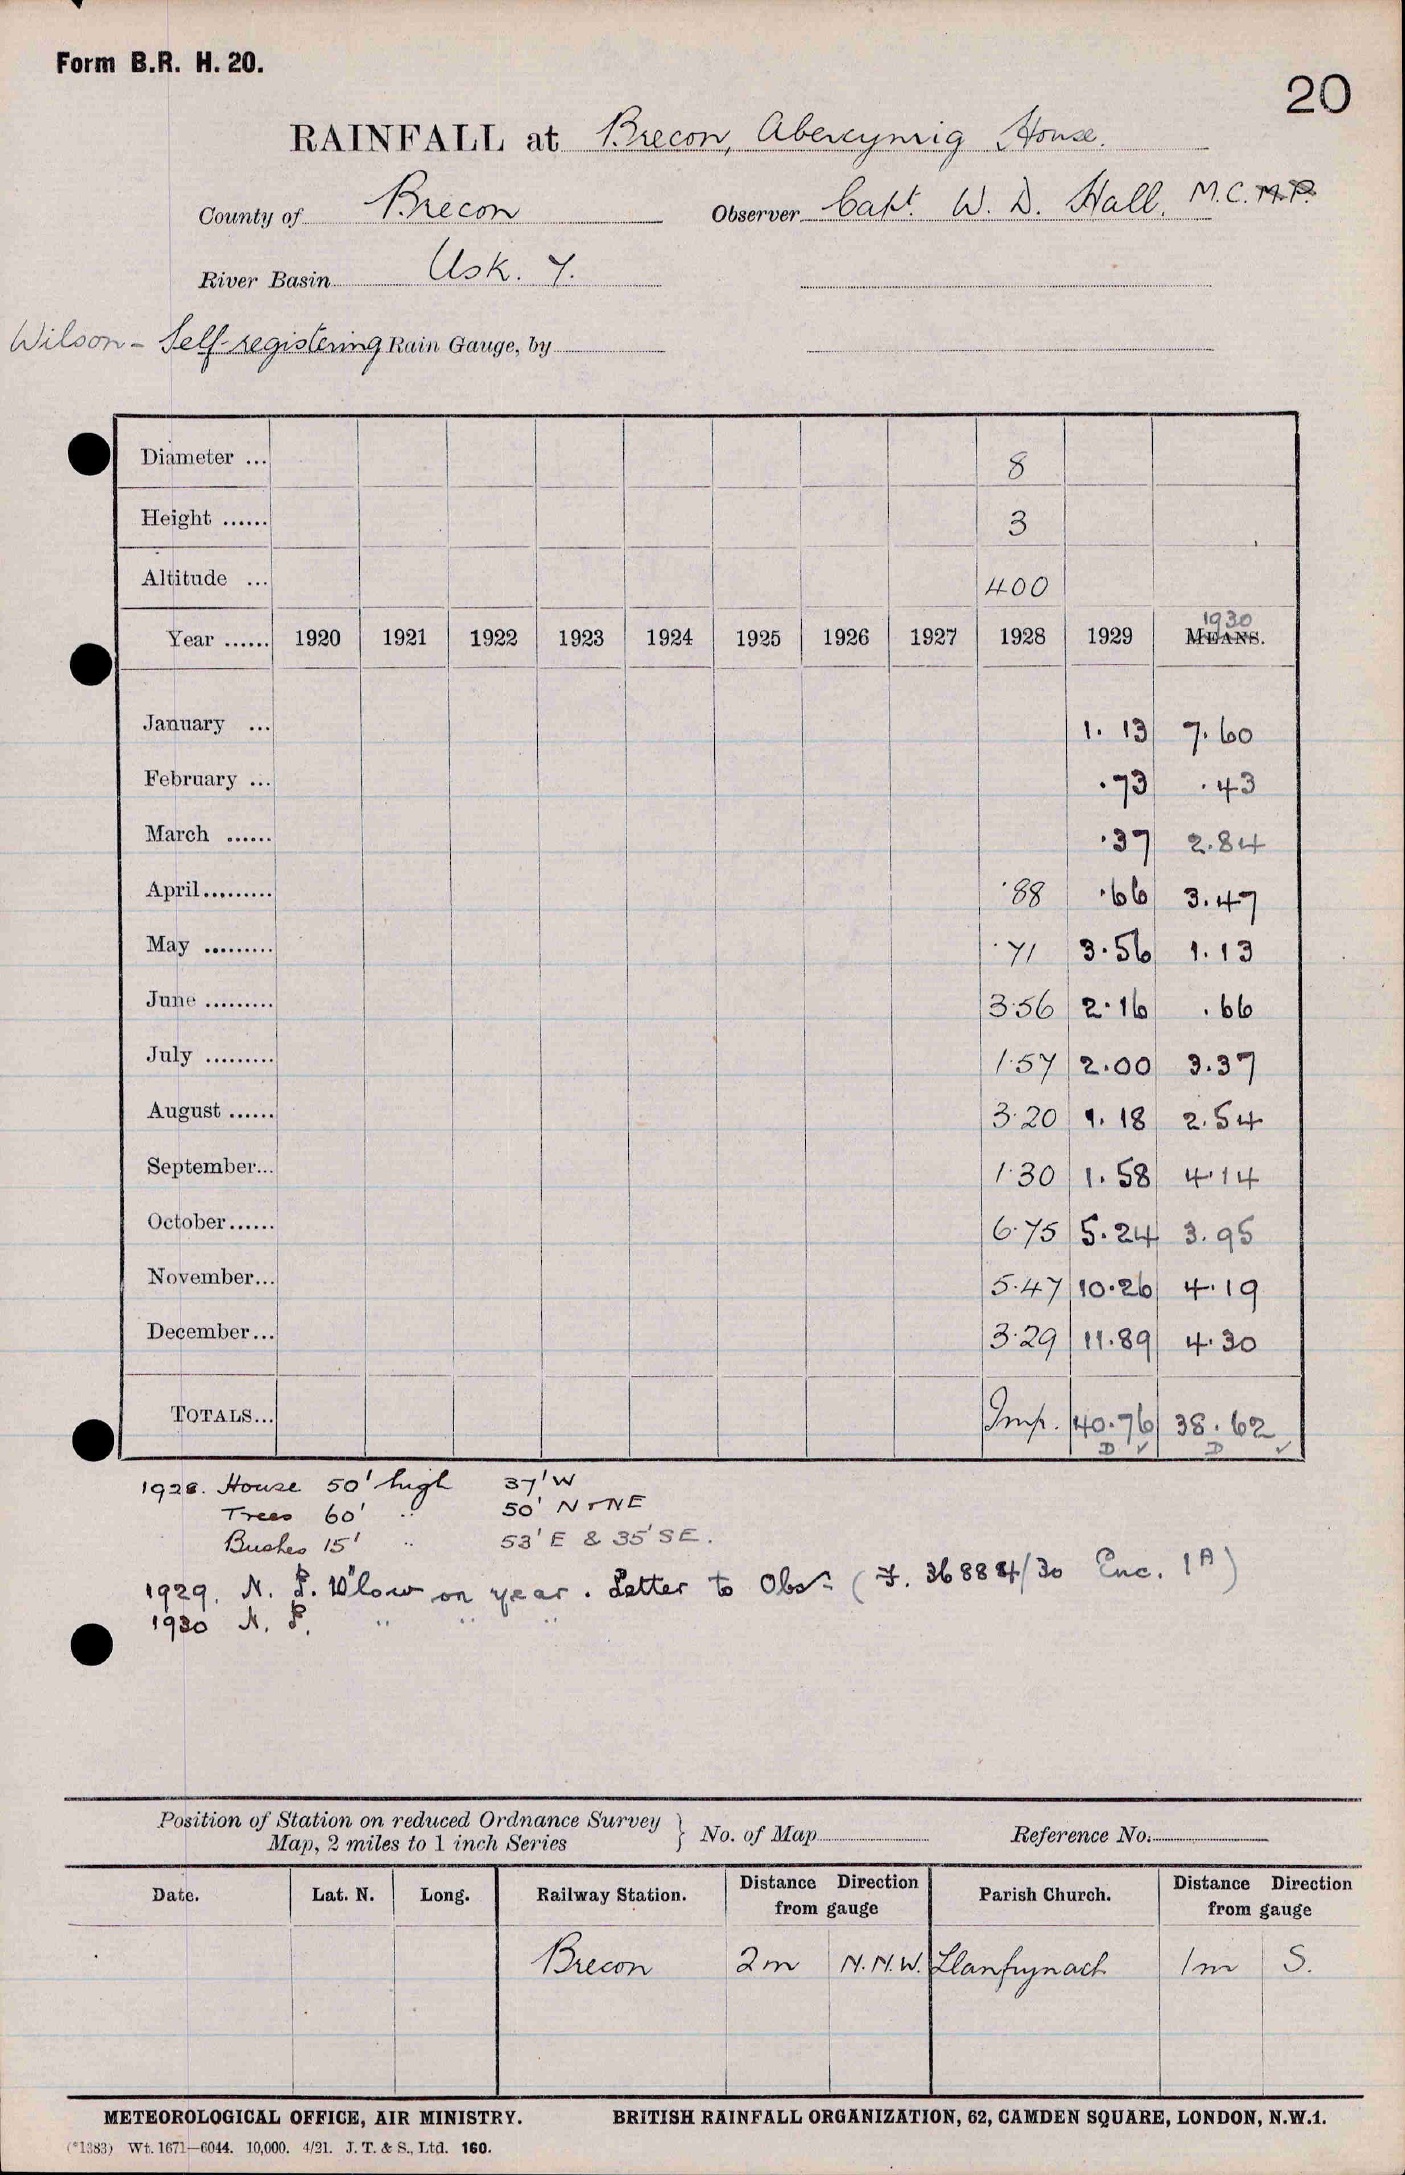 Form B.R. H. 20.
20
RAINFALL at Brecon, Abercynrig House.
County of Brecon Observer Capt. W. D. Hall. M.C. M.P.
River Basin Usk. 7.
Wilson - Self-registering Rain Gauge, by
Diameter ... 8
Height ...... 3
Altitude ... 400
1930
Year ...... 1920 1921 1922 1923 1924 1925 1926 1927 1928 1929 MEANS.
January ... 1.13 7.60
February ... .73 .43
March ...... .37 2.84
April......... .88 .66 3.47
May ......... .71 3.56 1.13
June ......... 3.56 2.16 .66
July ......... 1.57 2.00 3.37
August ...... 3.20 1.18 2.54
September... 1.30 1.58 4.14
October...... 6.75 5.24 3.95
November... 5.47 10.26 4.19
December... 3.29 11.89 4.30
TOTALS... Imp. 40.76 38.62
D ✓ D ✓
1928. House 50' high 37' W
Trees 60' " 50' N & NE
Bushes 15' " 53' E & 35' SE.
1929. N. P. 10" low on year. Letter to Obsr (F. 36884/30 Enc. 1A)
1930 N. P. " " "
Position of Station on reduced Ordnance Survey
Map, 2 miles to 1 inch Series } No. of Map Reference No.
Date. Lat. N. Long. Railway Station. Distance Direction from gauge Parish Church. Distance Direction from gauge
Brecon 2m N.N.W. Llanfrynach 1m S.
METEOROLOGICAL OFFICE, AIR MINISTRY. BRITISH RAINFALL ORGANIZATION, 62, CAMDEN SQUARE, LONDON, N.W.1.
(*1383) Wt. 1671—6044. 10,000. 4/21. J. T. & S., Ltd. 160.